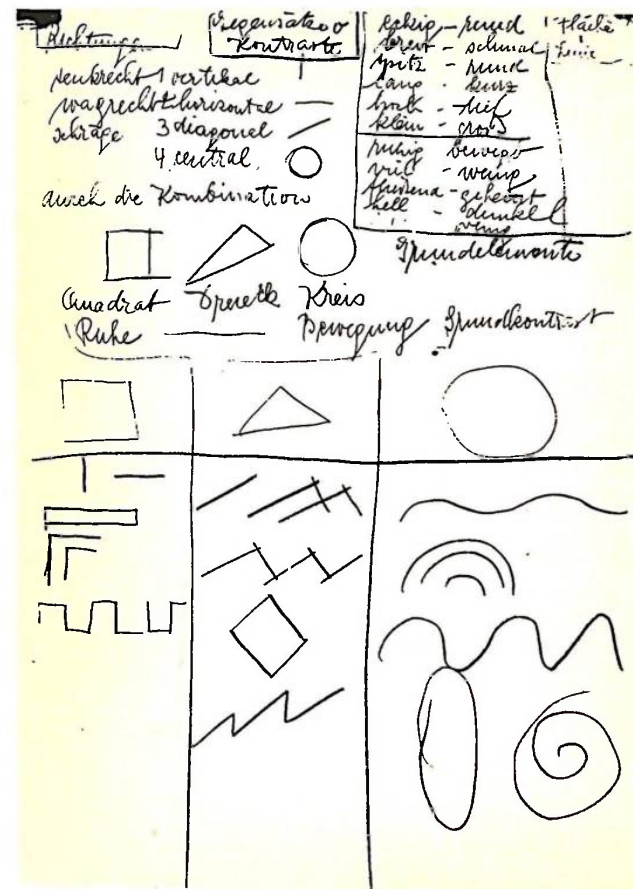 Richtungen
senkrecht 1 vertikal
wagrecht 2 horizontal
schräge 3 diagonal
4 central
durch die Kombination
Gegensätze
Kontraste
eckig - rund
breit - schmal
spitz - rund
lang - kurz
hoch - tief
klein - groß
ruhig bewegt
viel - wenig
hell - dunkel
wenig
Fläche
Linie
Grundelemente
Quadrat Dreieck Kreis
Ruhe Bewegung Grundkontrast